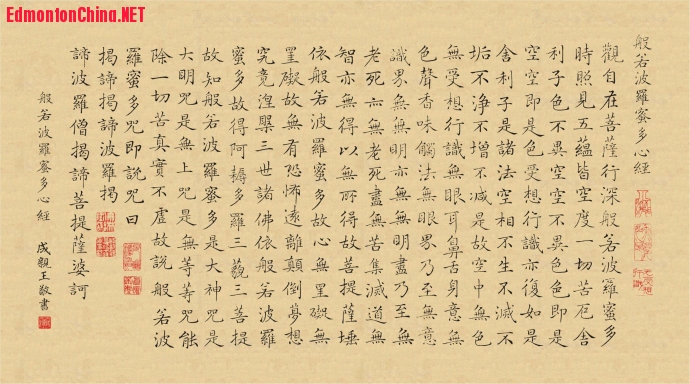 EdmontonChina.NET
般若波羅蜜多心經
觀自在菩薩行深般若波羅蜜多
時照見五蘊皆空度一切苦厄舍
利子色不異空空不異色色即是
空空即是色受想行識亦復如是
舍利子是諸法空相不生不滅不
垢不淨不增不減是故空中無色
無受想行識無眼耳鼻舌身意無
色聲香味觸法無眼界乃至無意
識界無無明亦無無明盡乃至無
老死亦無老死盡無苦集滅道無
智亦無得以無所得故菩提薩埵
依般若波羅蜜多故心無罣礙無
罣礙故無有恐怖遠離顛倒夢想
究竟涅槃三世諸佛依般若波羅
蜜多故得阿耨多羅三藐三菩提
故知般若波羅蜜多是大神咒是
大明咒是無上咒是無等等咒能
除一切苦真實不虛故說般若波
羅蜜多咒即說咒曰
揭諦揭諦波羅揭
諦波羅僧揭諦菩提薩婆訶
般若波羅蜜多心經 成親王敬書